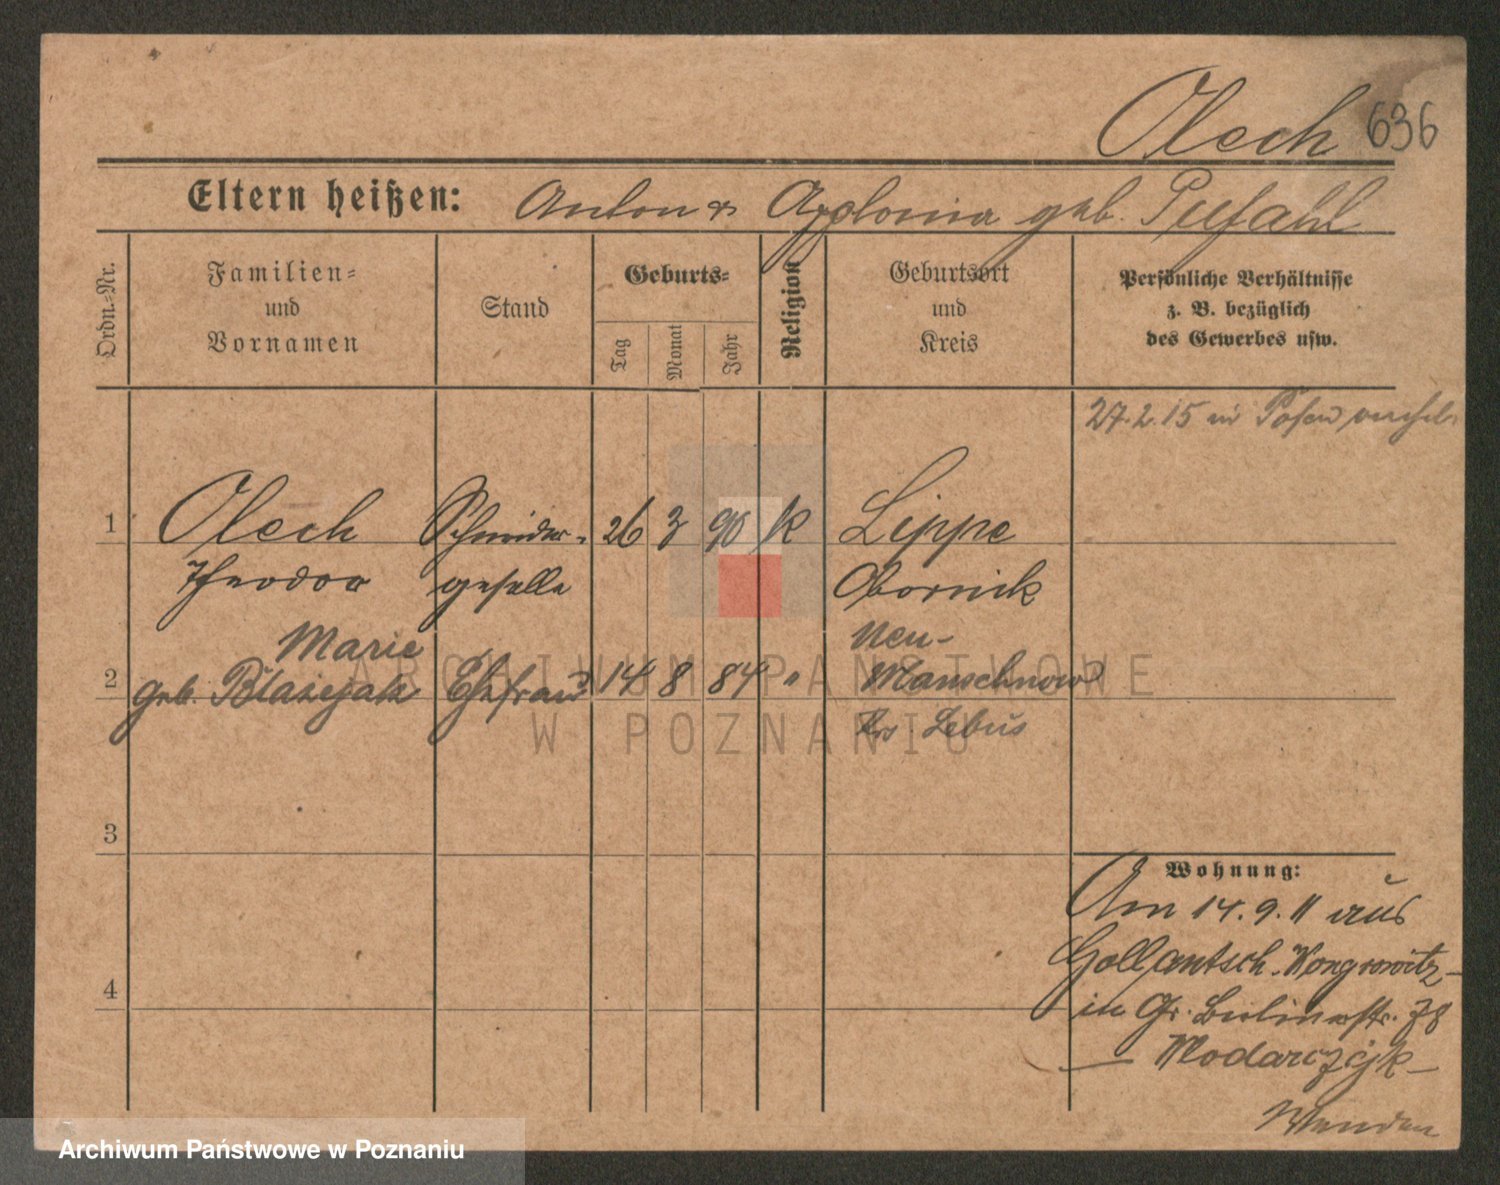 Olech 636
Eltern heißen: Anton & Apolonia geb. Pufahl
Ordn.-Nr.
Familien-
und
Vornamen
Stand
Geburts-
Tag
Monat
Jahr
Religion
Geburtsort
und
Kreis
Persönliche Verhältnisse
z. B. bezüglich
des Gewerbes usw.
27.2.15 in Posen
1 Olech Schneider- 26 3 90 k Lippe
Theodor geselle Obornick
Marie Neu-
2 geb. Blazejak Ehefrau 14 8 84 " Manschnow
Krs Lebus
3
4
Wohnung:
Am 14.9.11 aus
Gollantsch-Wongrowitz
in Gr. Berlinerstr. 78
Wlodarczijk
Wenden
ARCHIWUM PAŃSTWOWE
W POZNANIU
Archiwum Państwowe w Poznaniu